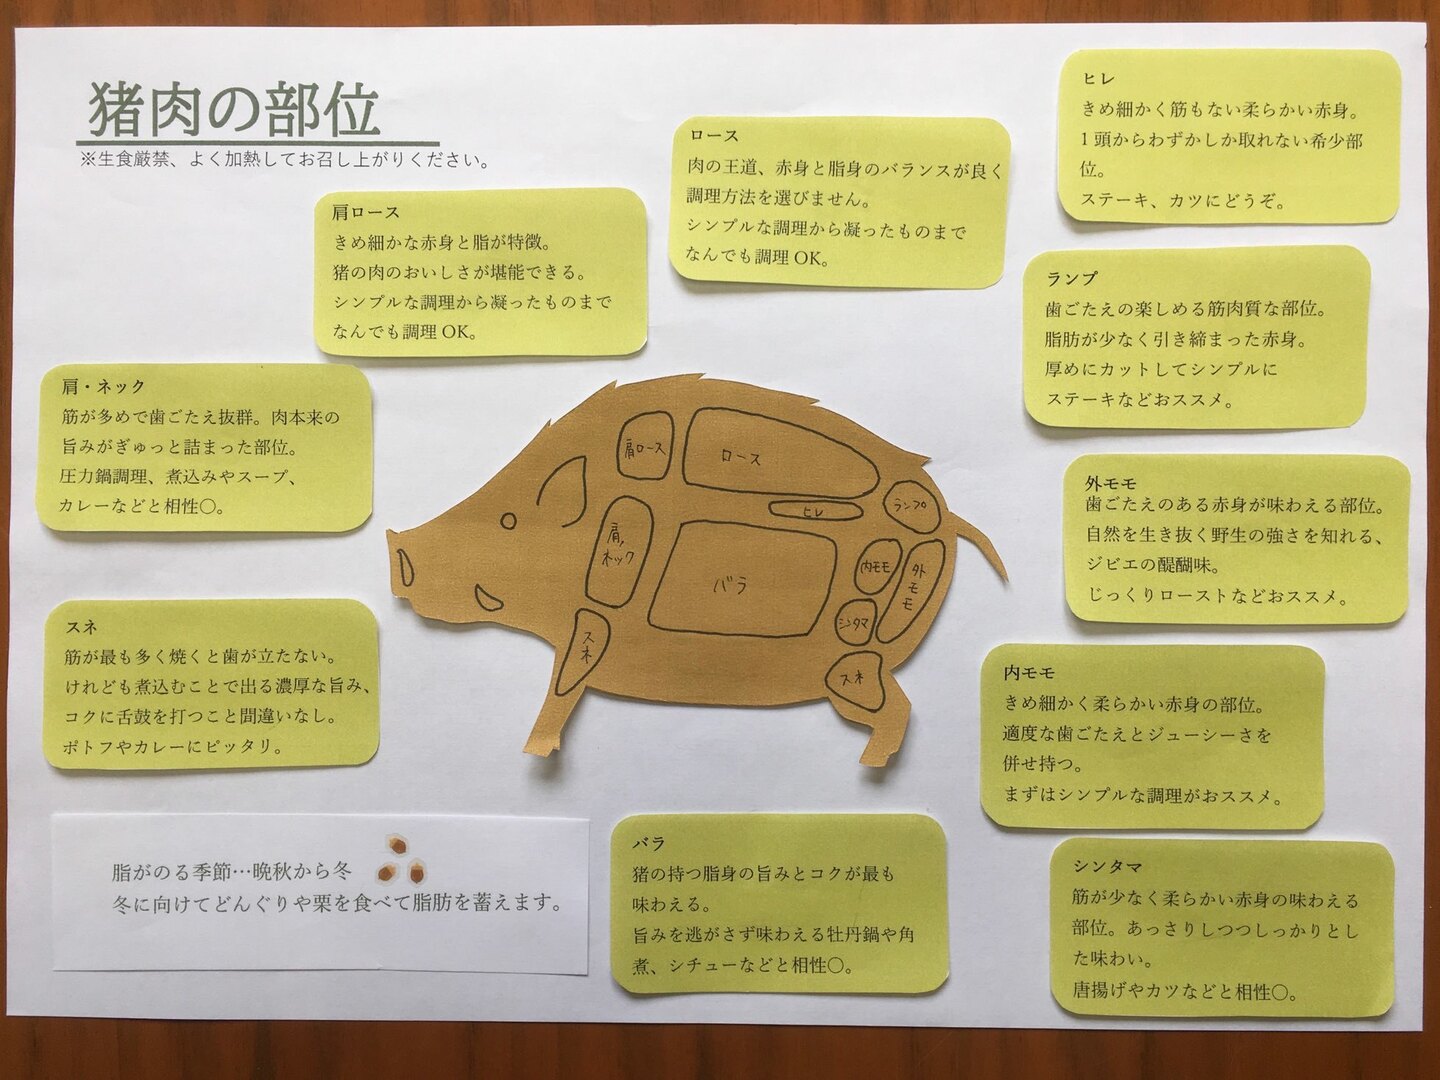 猪肉の部位
※生食厳禁、よく加熱してお召し上がりください。
肩ロース
きめ細かな赤身と脂が特徴。
猪の肉のおいしさが堪能できる。
シンプルな調理から凝ったものまで
なんでも調理OK。
ロース
肉の王道、赤身と脂身のバランスが良く
調理方法を選びません。
シンプルな調理から凝ったものまで
なんでも調理OK。
ヒレ
きめ細かく筋もない柔らかい赤身。
1頭からわずかしか取れない希少部
位。
ステーキ、カツにどうぞ。
ランプ
歯ごたえの楽しめる筋肉質な部位。
脂肪が少なく引き締まった赤身。
厚めにカットしてシンプルに
ステーキなどおススメ。
肩・ネック
筋が多めで歯ごたえ抜群。肉本来の
旨みがぎゅっと詰まった部位。
圧力鍋調理、煮込みやスープ、
カレーなどと相性〇。
外モモ
歯ごたえのある赤身が味わえる部位。
自然を生き抜く野生の強さを知れる、
ジビエの醍醐味。
じっくりローストなどおススメ。
肩ロース
ロース
ヒレ
ランプ
肩、
ネック
バラ
内モモ
外モモ
シンタマ
スネ
スネ
スネ
筋が最も多く焼くと歯が立たない。
けれども煮込むことで出る濃厚な旨み、
コクに舌鼓を打つこと間違いなし。
ポトフやカレーにピッタリ。
内モモ
きめ細かく柔らかい赤身の部位。
適度な歯ごたえとジューシーさを
併せ持つ。
まずはシンプルな調理がおススメ。
脂がのる季節…晩秋から冬
冬に向けてどんぐりや栗を食べて脂肪を蓄えます。
バラ
猪の持つ脂身の旨みとコクが最も
味わえる。
旨みを逃がさず味わえる牡丹鍋や角
煮、シチューなどと相性〇。
シンタマ
筋が少なく柔らかい赤身の味わえる
部位。あっさりしつつしっかりとし
た味わい。
唐揚げやカツなどと相性〇。